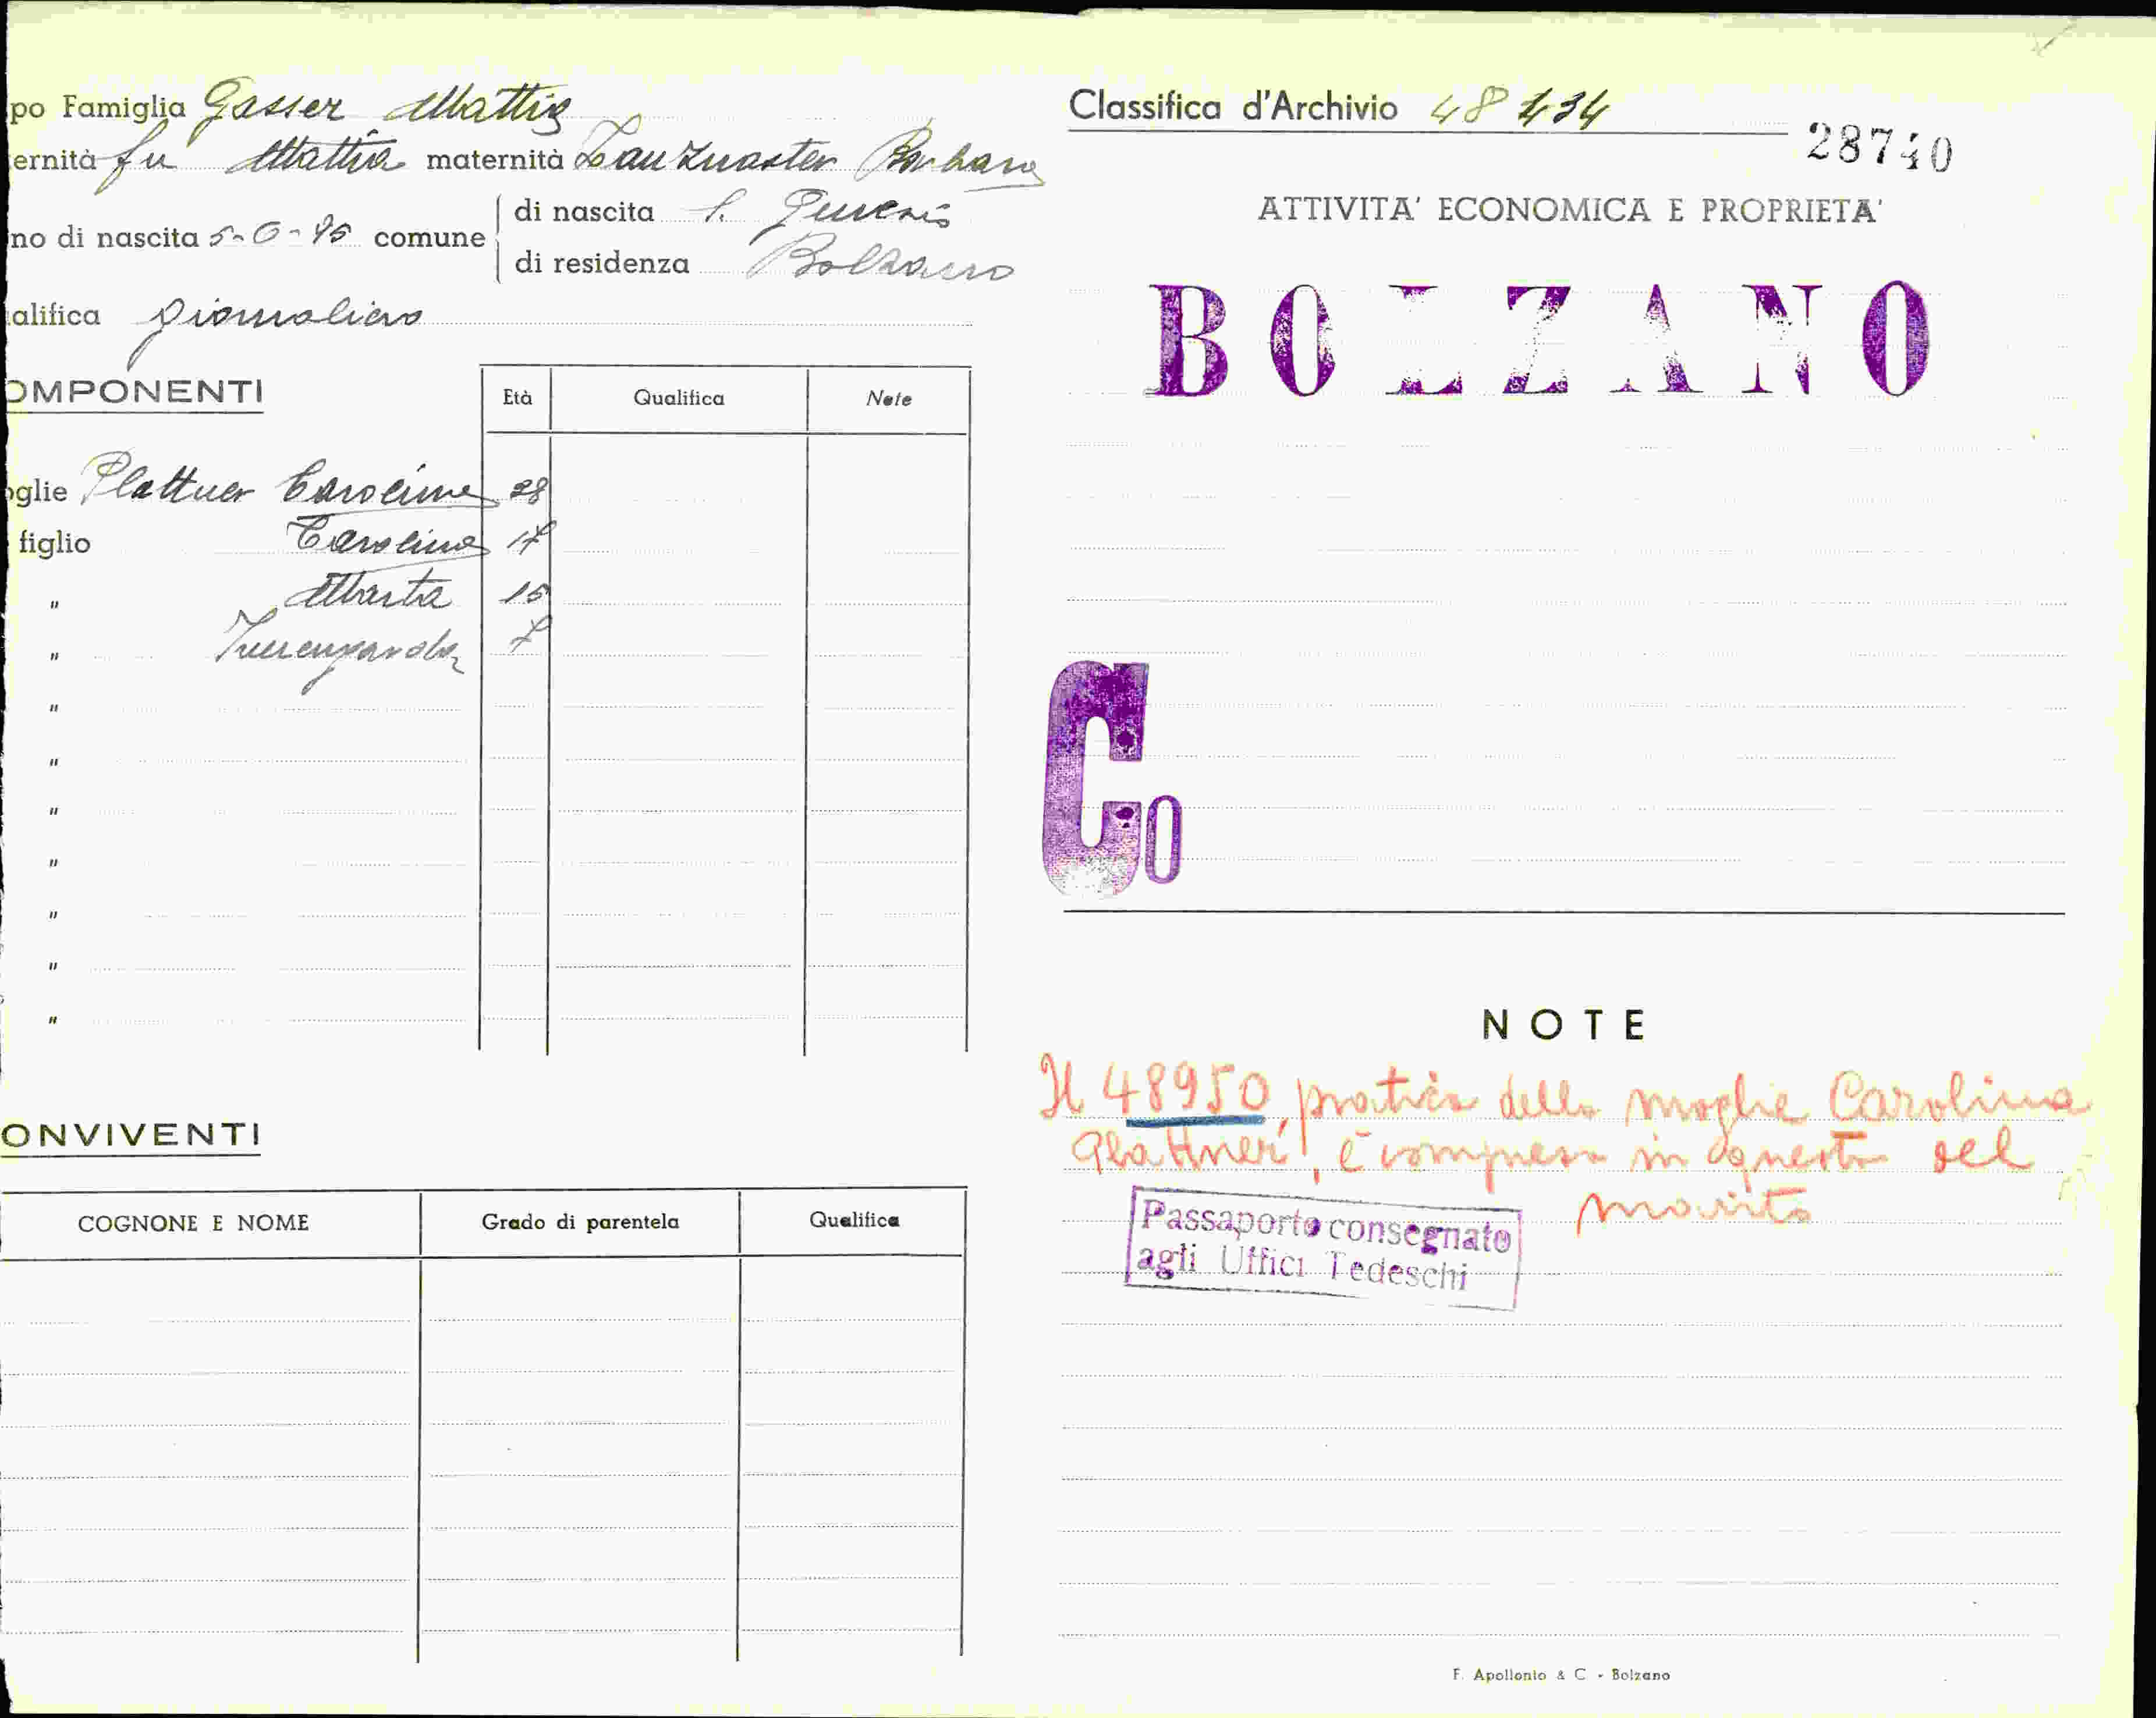 po Famiglia Gasser Mattia
ernità fu Mattia maternità Barbara
no di nascita comune
di nascita S. Genesio
di residenza Bolzano
alifica giornaliero
OMPONENTI
Età Qualifica Note
oglie Plattner Carolina 28
figlio Carolina 17
" Marta 15
" 7
"
"
"
"
"
"
"
ONVIVENTI
COGNONE E NOME Grado di parentela Qualifica
Classifica d'Archivio 48434
28740
ATTIVITA' ECONOMICA E PROPRIETA'
BOLZANO
Co
NOTE
Il 48950, pratica della moglie Carolina
Plattner, è compresa in questa del
marito
Passaporto consegnato
agli Uffici Tedeschi
F. Apollonio & C - Bolzano